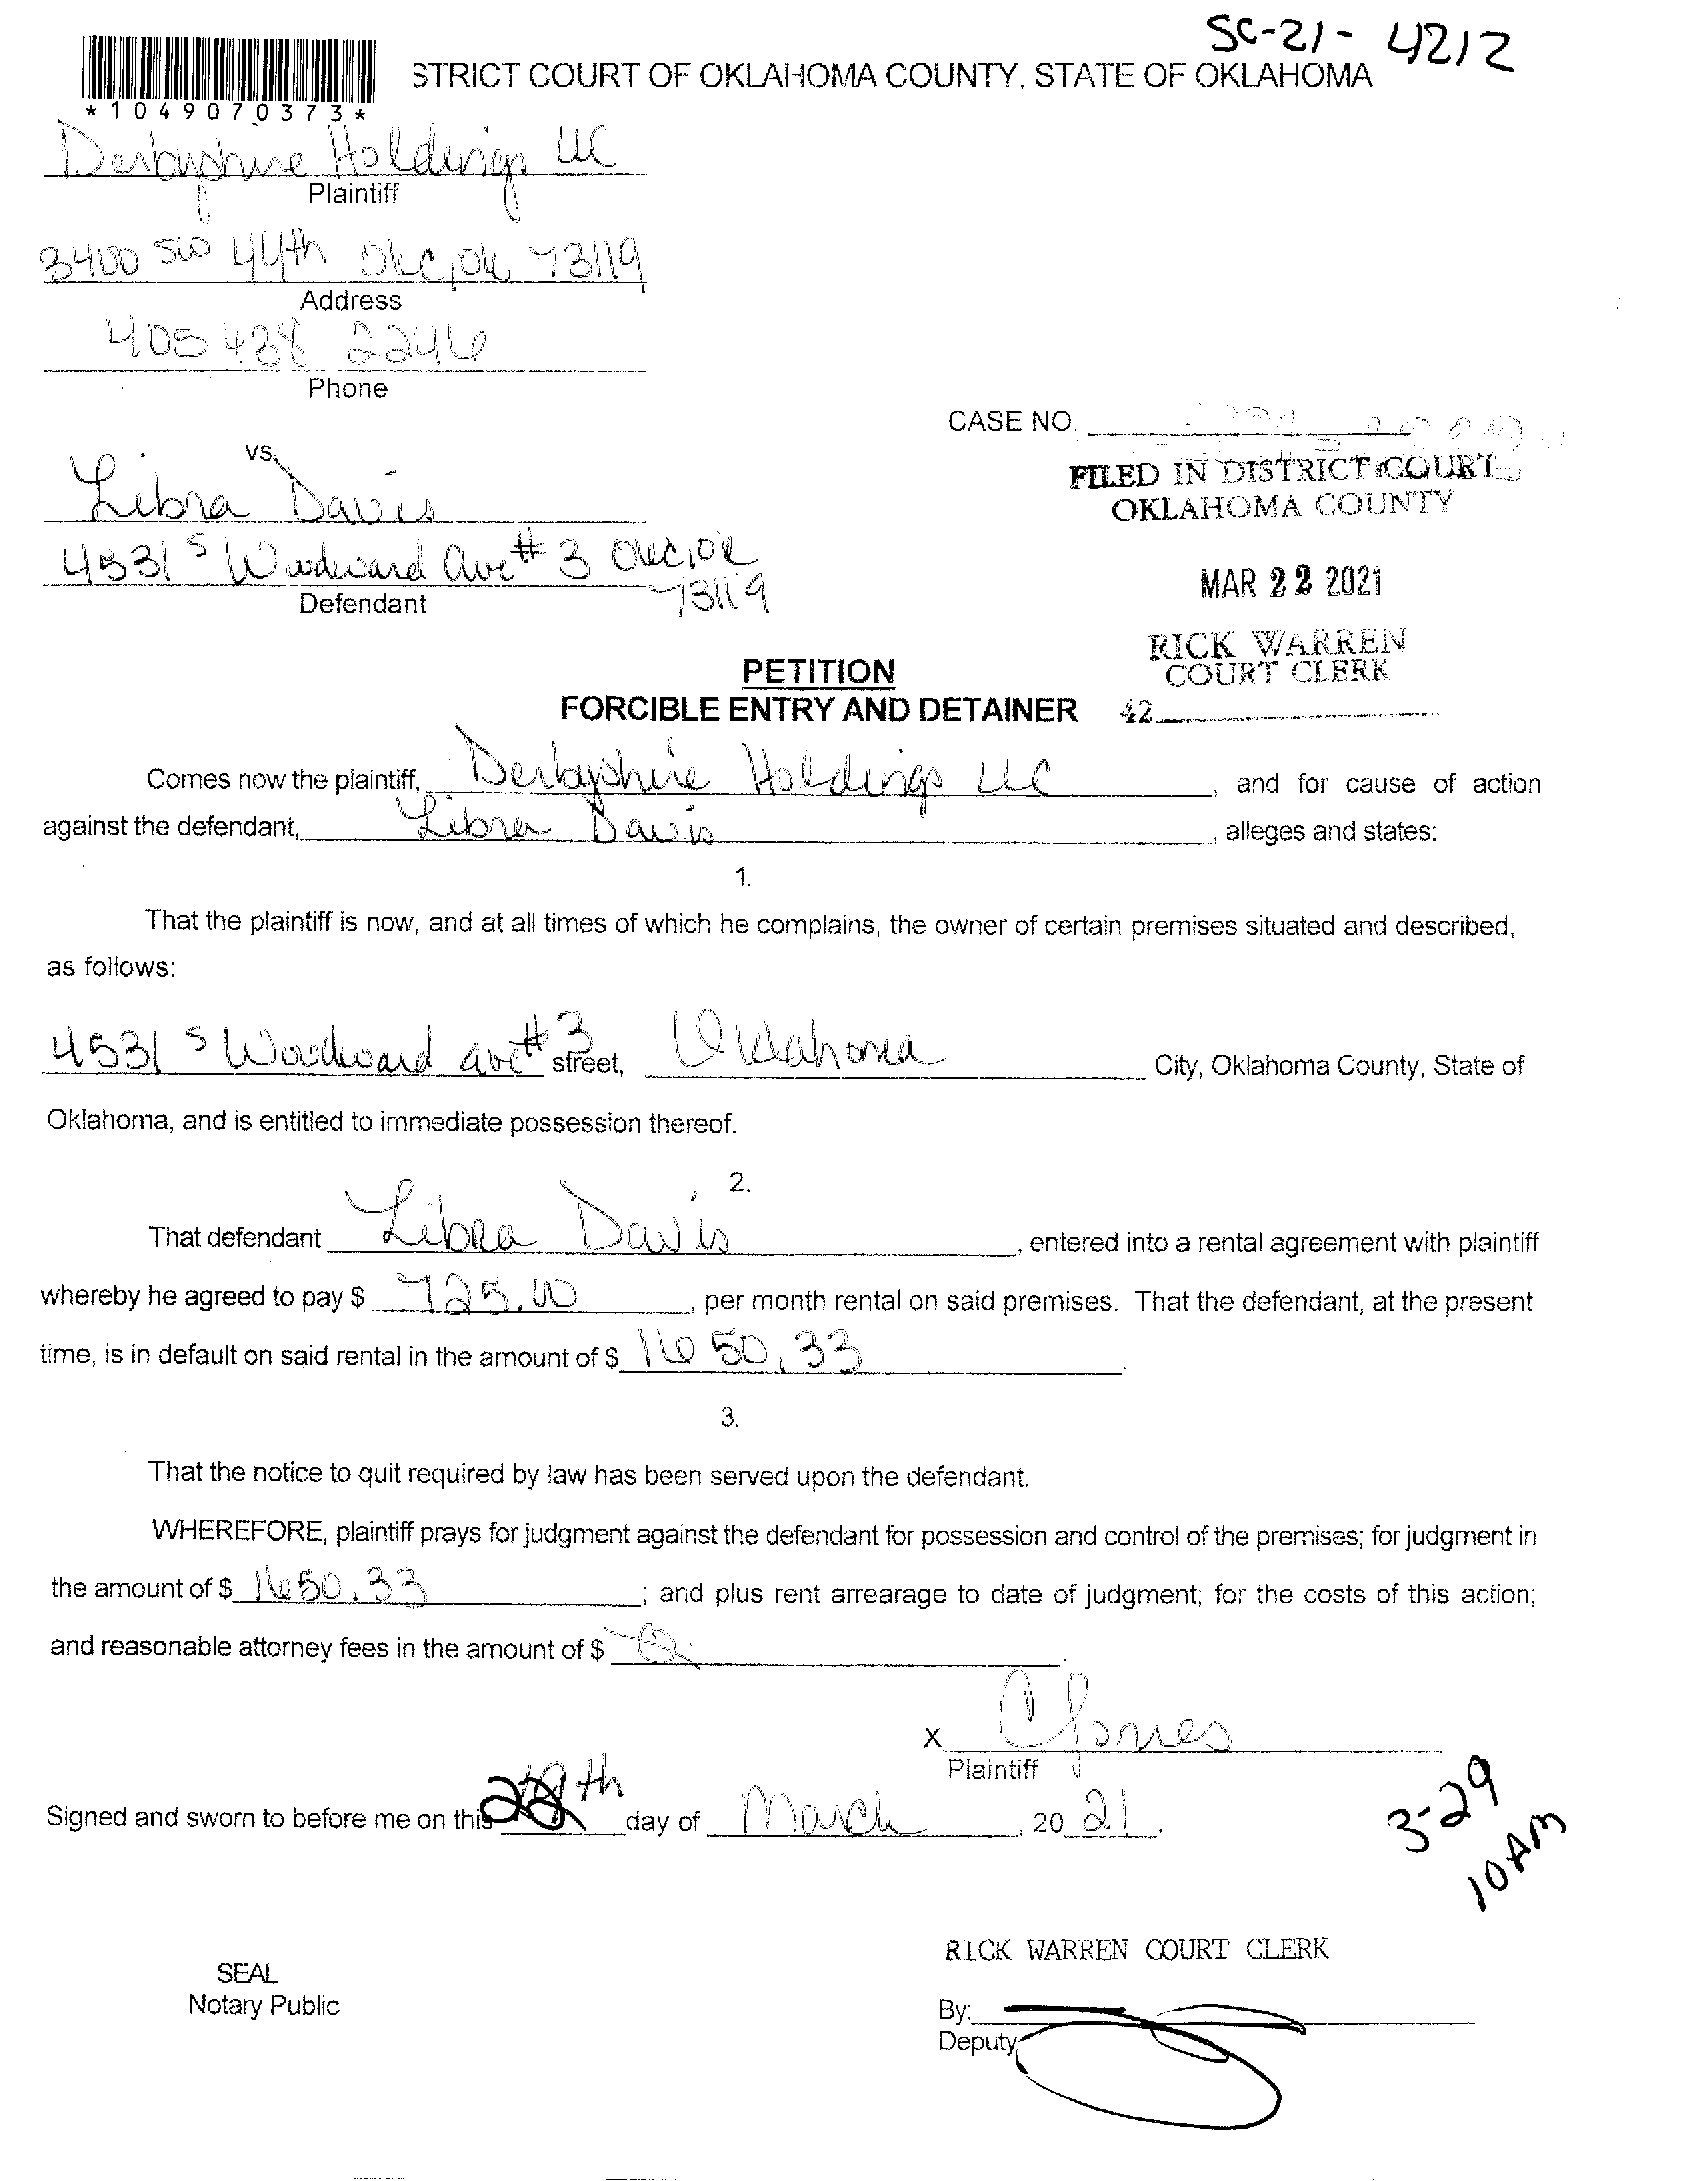 SC-21- 4212
STRICT COURT OF OKLAHOMA COUNTY, STATE OF OKLAHOMA
*1049070373*
Derbyshire Holdings LLC
Plaintiff
3400 SW 44th OKC, OK 73119
Address
405 438 2246
Phone
CASE NO.
vs.
FILED IN DISTRICT COURT
OKLAHOMA COUNTY
Libra Davis
4531 S Woodward Ave #3 OKC, OK
73119
Defendant
MAR 22 2021
RICK WARREN
COURT CLERK
PETITION
FORCIBLE ENTRY AND DETAINER 42
Comes now the plaintiff, Derbyshire Holdings LLC, and for cause of action
against the defendant, Libra Davis, alleges and states:
1.
That the plaintiff is now, and at all times of which he complains, the owner of certain premises situated and described,
as follows:
4531 S Woodward ave #3 street, Oklahoma City, Oklahoma County, State of
Oklahoma, and is entitled to immediate possession thereof.
2.
That defendant Libra Davis, entered into a rental agreement with plaintiff
whereby he agreed to pay $ 725.00, per month rental on said premises. That the defendant, at the present
time, is in default on said rental in the amount of $ 1650.33.
3.
That the notice to quit required by law has been served upon the defendant.
WHEREFORE, plaintiff prays for judgment against the defendant for possession and control of the premises; for judgment in
the amount of $ 1650.33; and plus rent arrearage to date of judgment; for the costs of this action;
and reasonable attorney fees in the amount of $
X CJones
Plaintiff
Signed and sworn to before me on this 22th day of March, 20 21.
3-29
10 AM
RICK WARREN COURT CLERK
SEAL
Notary Public
By:
Deputy